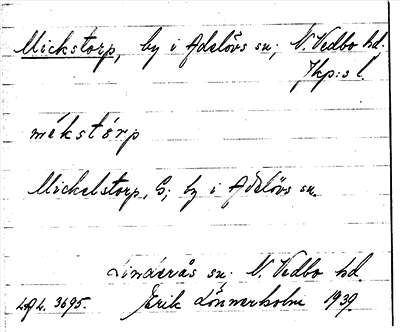 Mickstorp, by i Adelövs sn; N. Vedbo hd;
Jkp:s l.
mékstórp
Mickelstorp, S; by i Adelövs sn.
Linderås sn. N. Vedbo hd.
LAL. 3695. Erik Lönnerholm 1939.